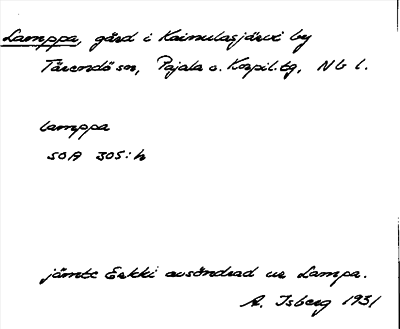 Lamppa, gård i Kainulasjärvi by
Tärendö sn, Pajala o. Korpil. tg, Nb l.
lamppa
SOA 305:h
jämte Erkki avsöndrad ur Lampa.
A. Isberg 1931